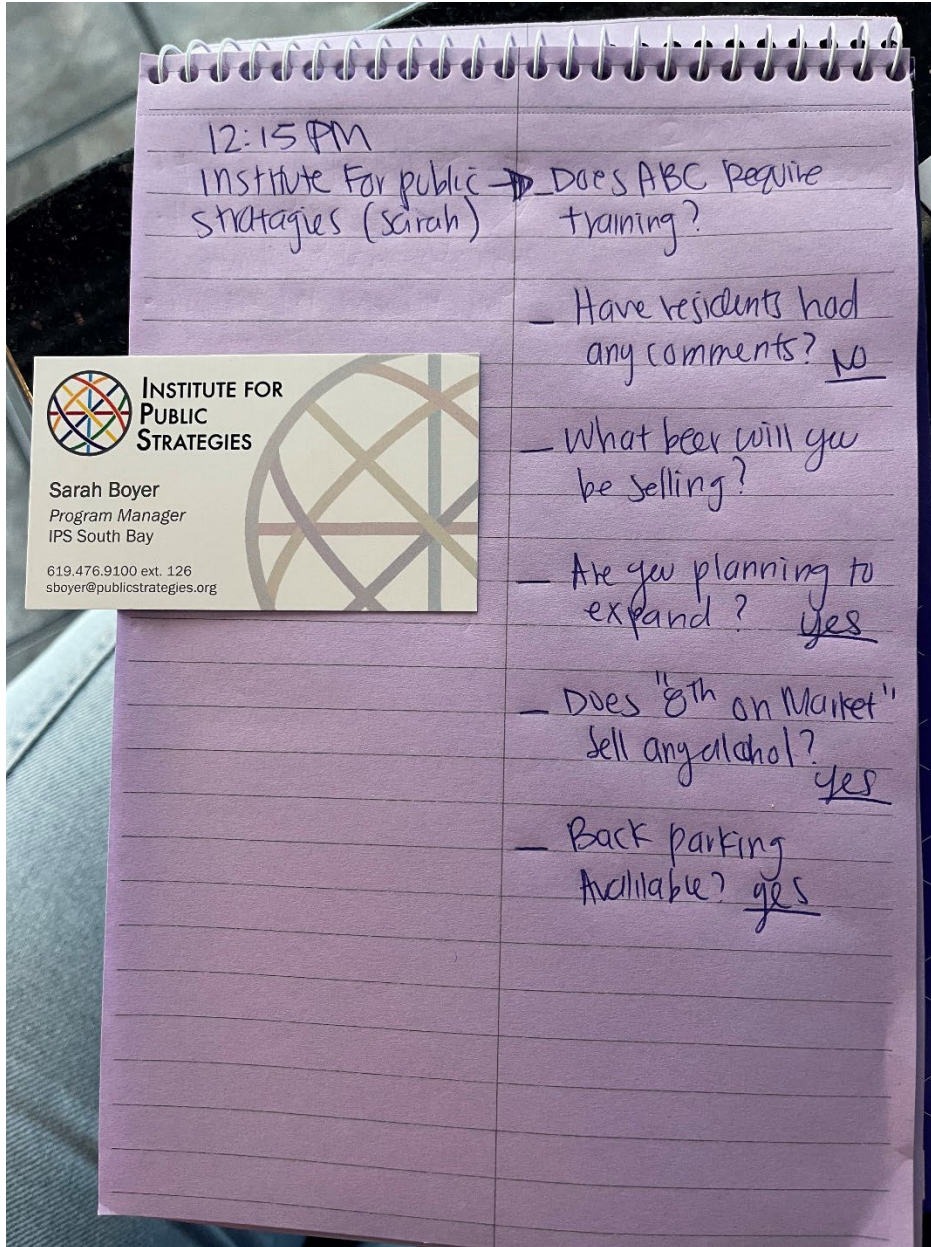 12:15 PM
Institute For public
stratagies (sarah)
INSTITUTE FOR
PUBLIC
STRATEGIES
Sarah Boyer
Program Manager
IPS South Bay
619.476.9100 ext. 126
sboyer@publicstrategies.org
→ Does ABC Require
training?
– Have residents had
any comments? NO
– What beer will you
be selling?
– Are you planning to
expand? yes
– Does "8th on Market"
sell any alcohol?
yes
– Back parking
Available? yes